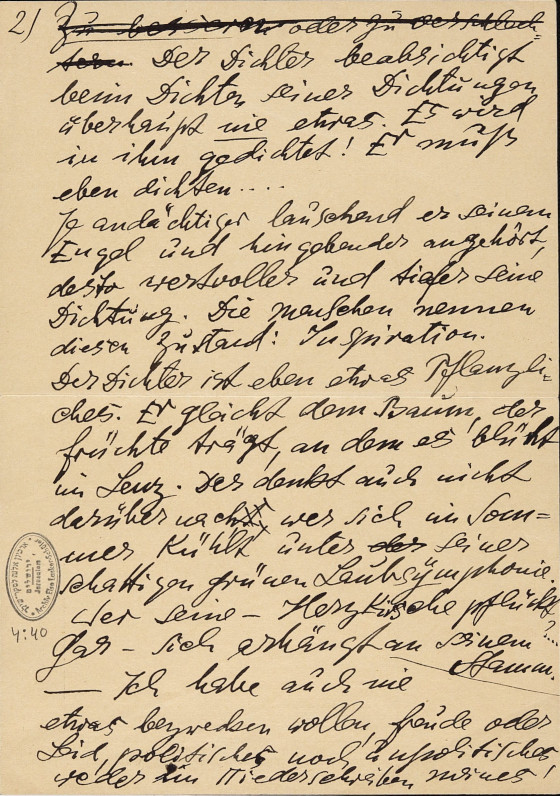 2) Zu bessern oder zu verschlech-
tern Der Dichter beabsichtigt
beim Dichten seiner Dichtungen
überhaupt nie etwas. Es wird
in ihm gedichtet! Er muß
eben dichten....
Je andächtiger lauschend er seinem
Engel und hingebender angehört,
desto wertvoller und tiefer seine
Dichtung. Die Menschen nennen
diesen Zustand: Inspiration.
Der Dichter ist eben etwas Pflanzli-
ches. Er gleicht dem Baum, der
Früchte trägt, an dem es blüht
im Lenz. Der denkt auch nicht
darüber nach, wer sich im Som-
mer kühlt unter der seiner
schattigen grünen Laubsymphonie
Wer seine – Herzkirsche pflückt
Gar – sich erhängt an seinem Stamm. ?...
— Ich habe auch nie
etwas bezwecken wollen, Freude oder
Leid, politisches noch unpolitisches
weder im Niederschreiben meines!
Jerusalem
4:40